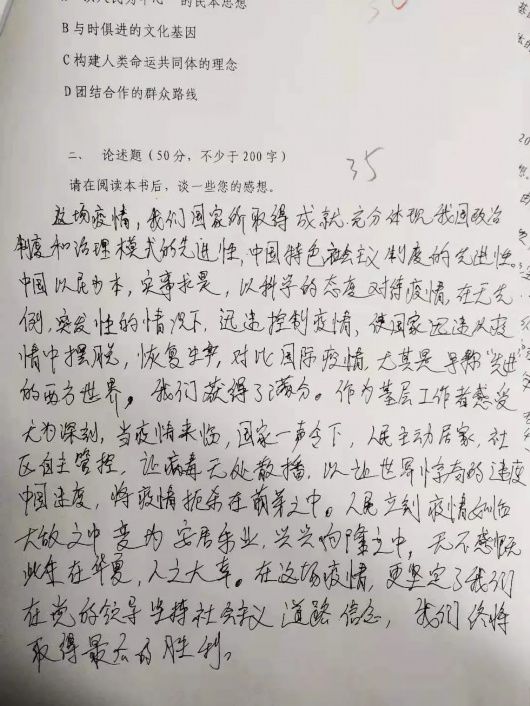 以人民为中心”的民本思想
B 与时俱进的文化基因
C 构建人类命运共同体的理念
D 团结合作的群众路线
二、 论述题（50分，不少于200字）
35
请在阅读本书后，谈一些您的感想。
这场疫情，我们国家所取得成就充分体现我国政治
制度和治理模式的先进性，中国特色社会主义制度的先进性。
中国以民为本，实事求是，以科学的态度对待疫情，在无先
例，突发性的情况下，迅速控制疫情，使国家迅速从疫
情中摆脱，恢复生产，对比国际疫情，尤其是号称“先进”
的西方世界，我们获得了满分。作为基层工作者感受
尤为深刻，当疫情来临，国家一声令下，人民主动居家，社
区自主管控，让病毒无处散播，以让世界惊奇的速度
中国速度，将疫情扼杀在萌芽之中。人民立刻疫情如临
大敌之中变为安居乐业，兴兴向隆之中，无不感慨
此生在华夏，人之大幸。在这场疫情，更坚定了我们
在党的领导坚持社会主义道路信念，我们终将
取得最后的胜利。